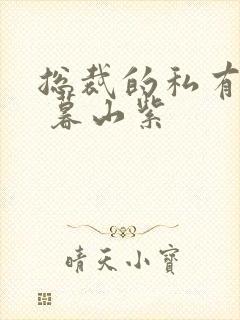 总裁的私有
暮山紫
晴天小宝